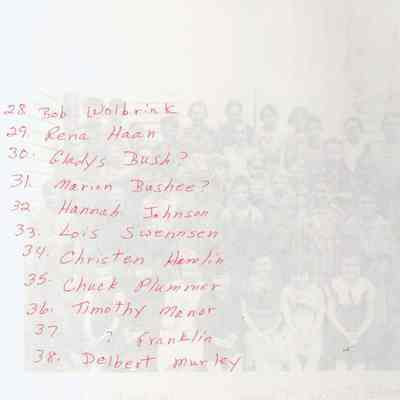 28 Bob Wolbrink
29. Rena Haan
30. Gladys Bush?
31. Marion Bushee?
32 Hannah Johnson
33. Lois Swennsen
34. Christen Hamlin
35. Chuck Plummer
36. Timothy Manor
37 ? Franklin
38. Delbert Murley